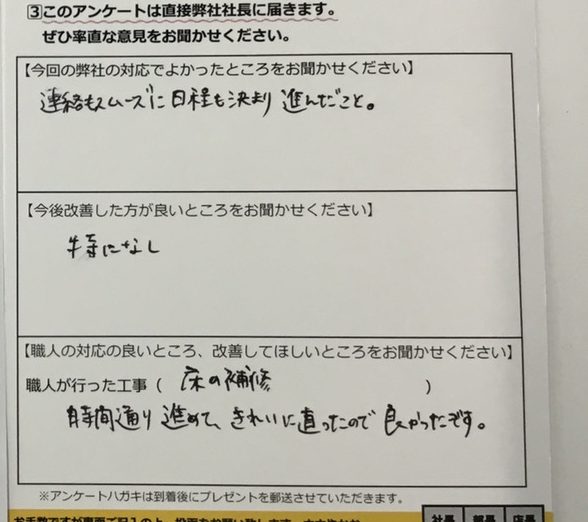 ③このアンケートは直接弊社社長に届きます。
ぜひ率直な意見をお聞かせください。
【今回の弊社の対応でよかったところをお聞かせください】
連絡もスムーズに日程も決まり進んだこと。
【今後改善した方が良いところをお聞かせください】
特になし
【職人の対応の良いところ、改善してほしいところをお聞かせください】
職人が行った工事（ 床の補修 ）
時間通り進めて、きれいに直ったので良かったです。
※アンケートハガキは到着後にプレゼントを郵送させていただきます。
社長 部長 店長